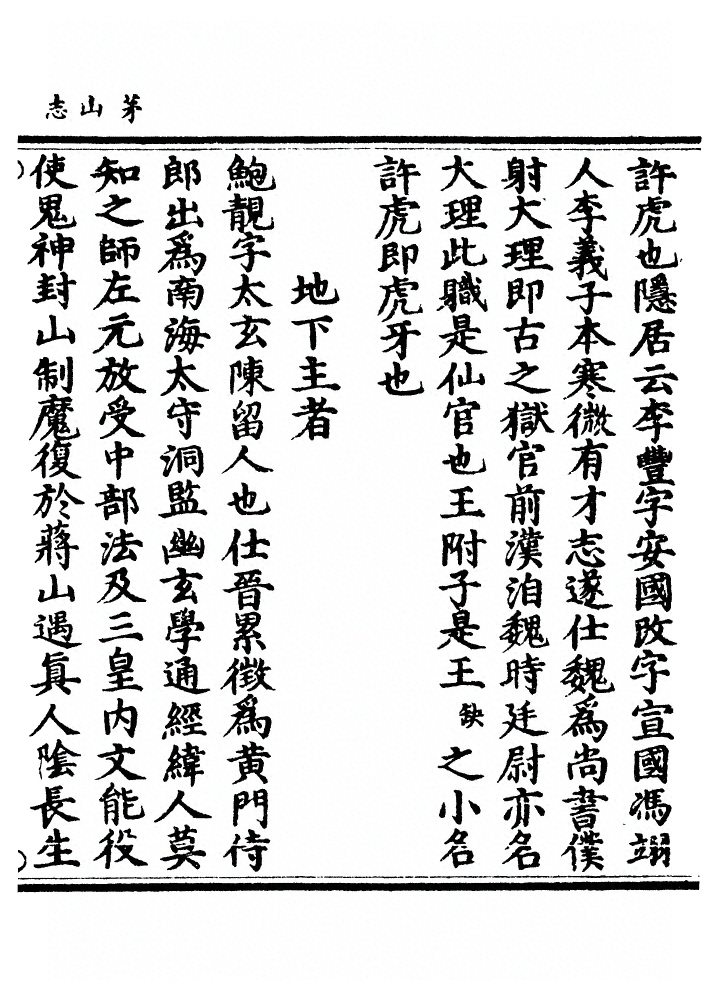 茅山志
許虎也隱居云李豐字安國改字宣國馮翊
人李義子本寒微有才志遂仕魏爲尚書僕
射大理即古之獄官前漢洎魏時廷尉亦名
大理此職是仙官也王附子是王缺之小名
許虎即虎牙也
地下主者
鮑靚字太玄陳留人也仕晉累徵爲黄門侍
郎出爲南海太守洞監幽玄學通經緯人莫
知之師左元放受中部法及三皇内文能役
使鬼神封山制魔復於蔣山遇眞人陰長生